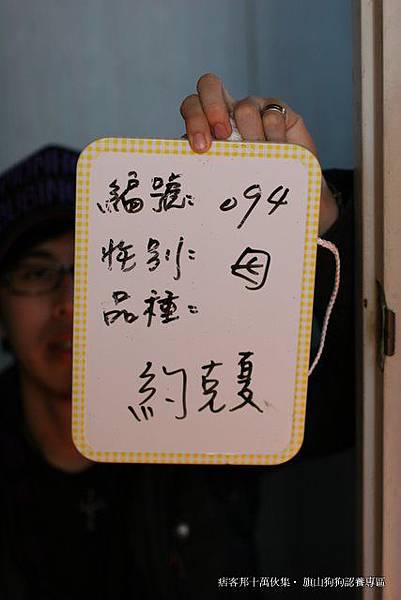 編號: 094
性別: 母
品種:
約克夏
痞客邦十萬伙集 · 旗山狗狗認養專區